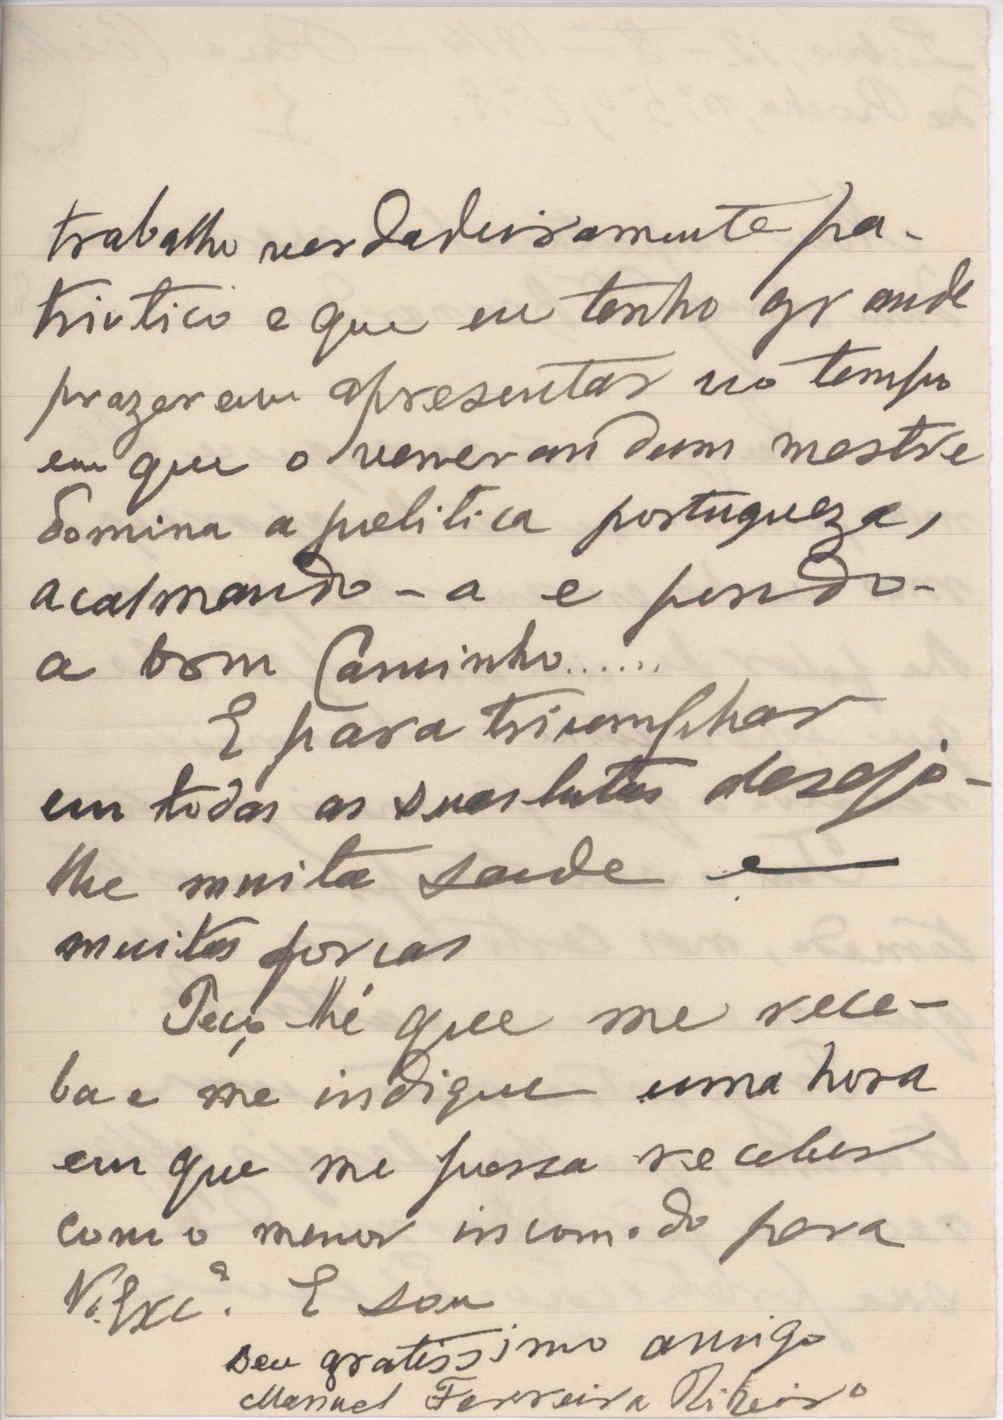 trabalho verdadeiramente pa-
triotico e que eu tenho grande
prazer em apresentar no tempo
em que o venerandum mestre
domina a politica portugueza,
acalmando-a e pondo-
a bom Caminho......
E para triumphar
em todas as suas lutas desejo-
lhe muita saude e
muitas forcas
Peço-lhe que me rece-
ba e me indique uma hora
em que me possa receber
com o menor incomodo para
V. Excª. E sou
seu gratissimo amigo
Manuel Ferreira Ribeiro